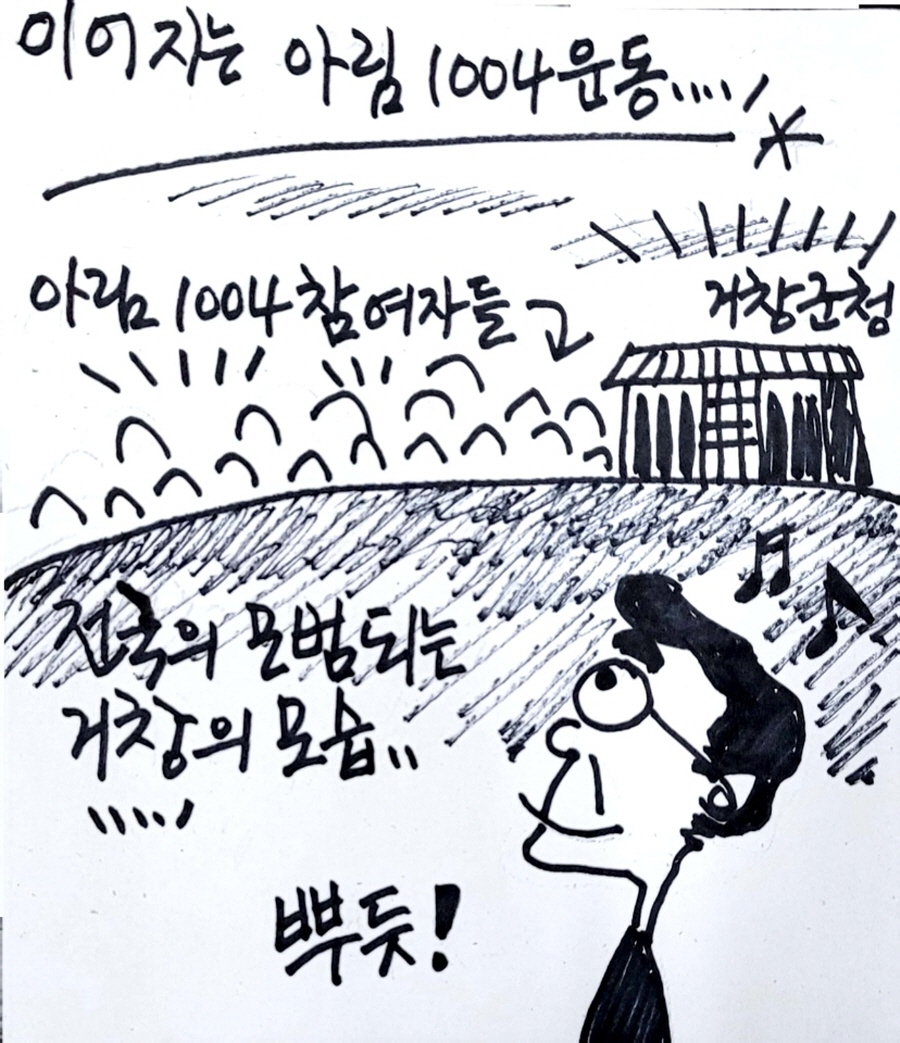 이어지는 아림 1004운동....
거창군청
아림 1004 참여자들
전국의 모범되는
거창의 모습..
뿌듯!